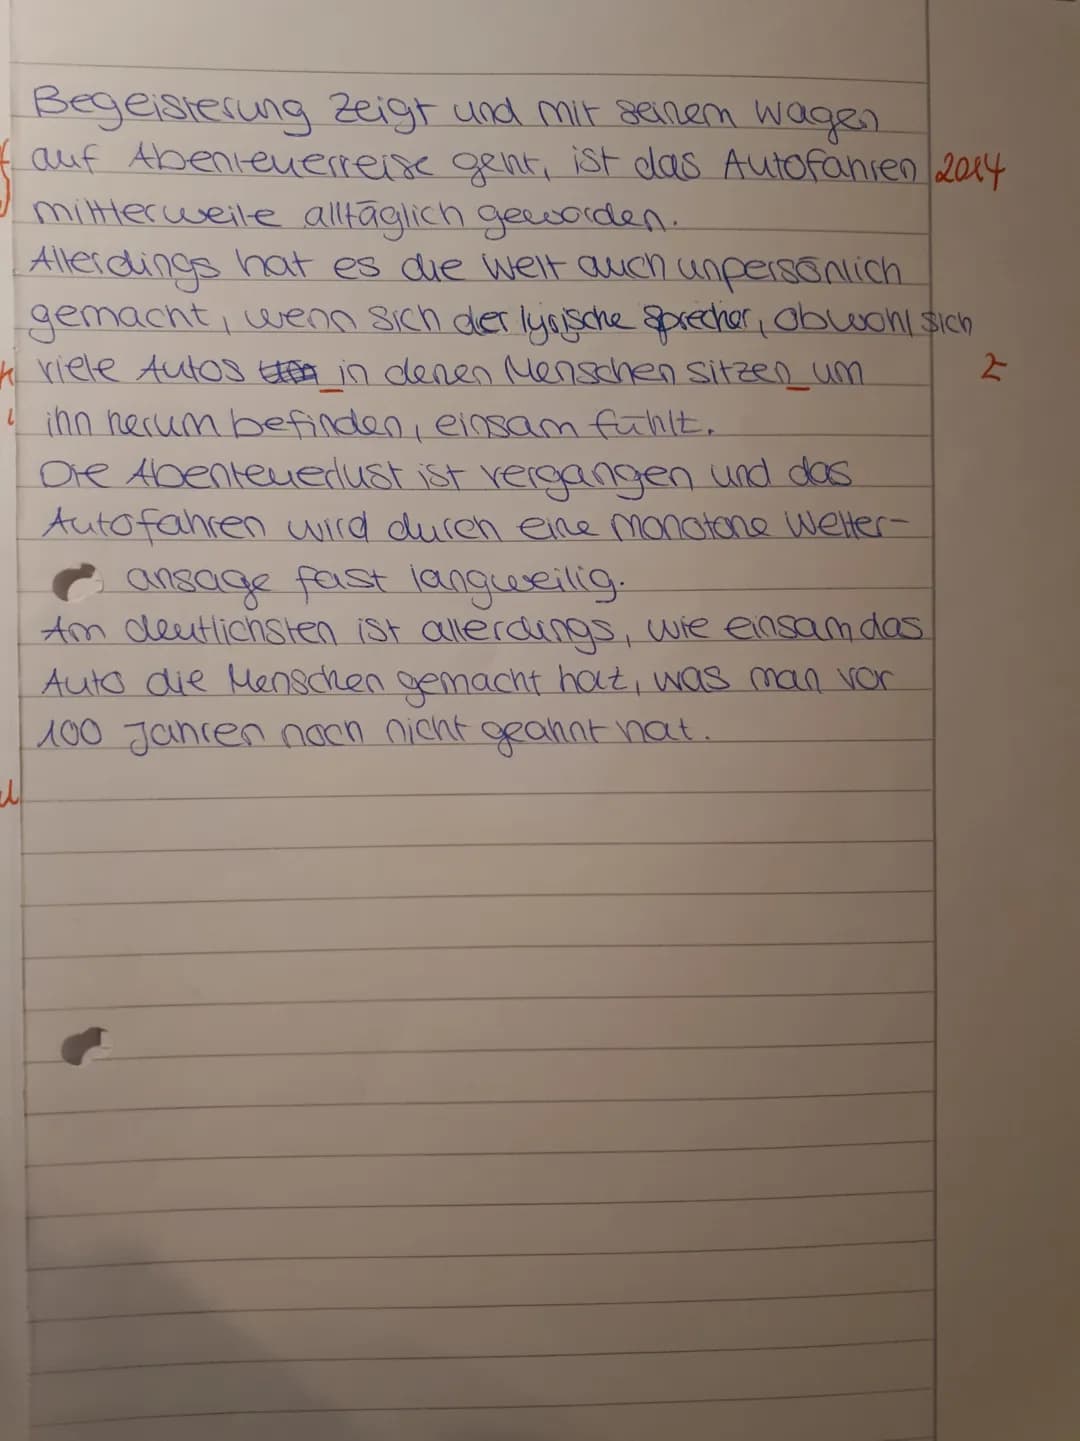 Begeisterung zeigt und mit seinem Wagen
auf Abenteuerreise geht, ist das Autofahren 2014
mittlerweile alltäglich geworden.
Allerdings hat es die Welt auch unpersönlich
gemacht, wenn sich der lyrische Sprecher, obwohl sich
viele Autos in denen Menschen sitzen um
ihn herum befinden, einsam fühlt.
Die Abenteuerlust ist vergangen und das
Autofahren wird durch eine monotone Wetter-
ansage fast langweilig.
Am deutlichsten ist allerdings, wie einsam das
Auto die Menschen gemacht hat, was man vor
100 Jahren noch nicht geahnt hat.